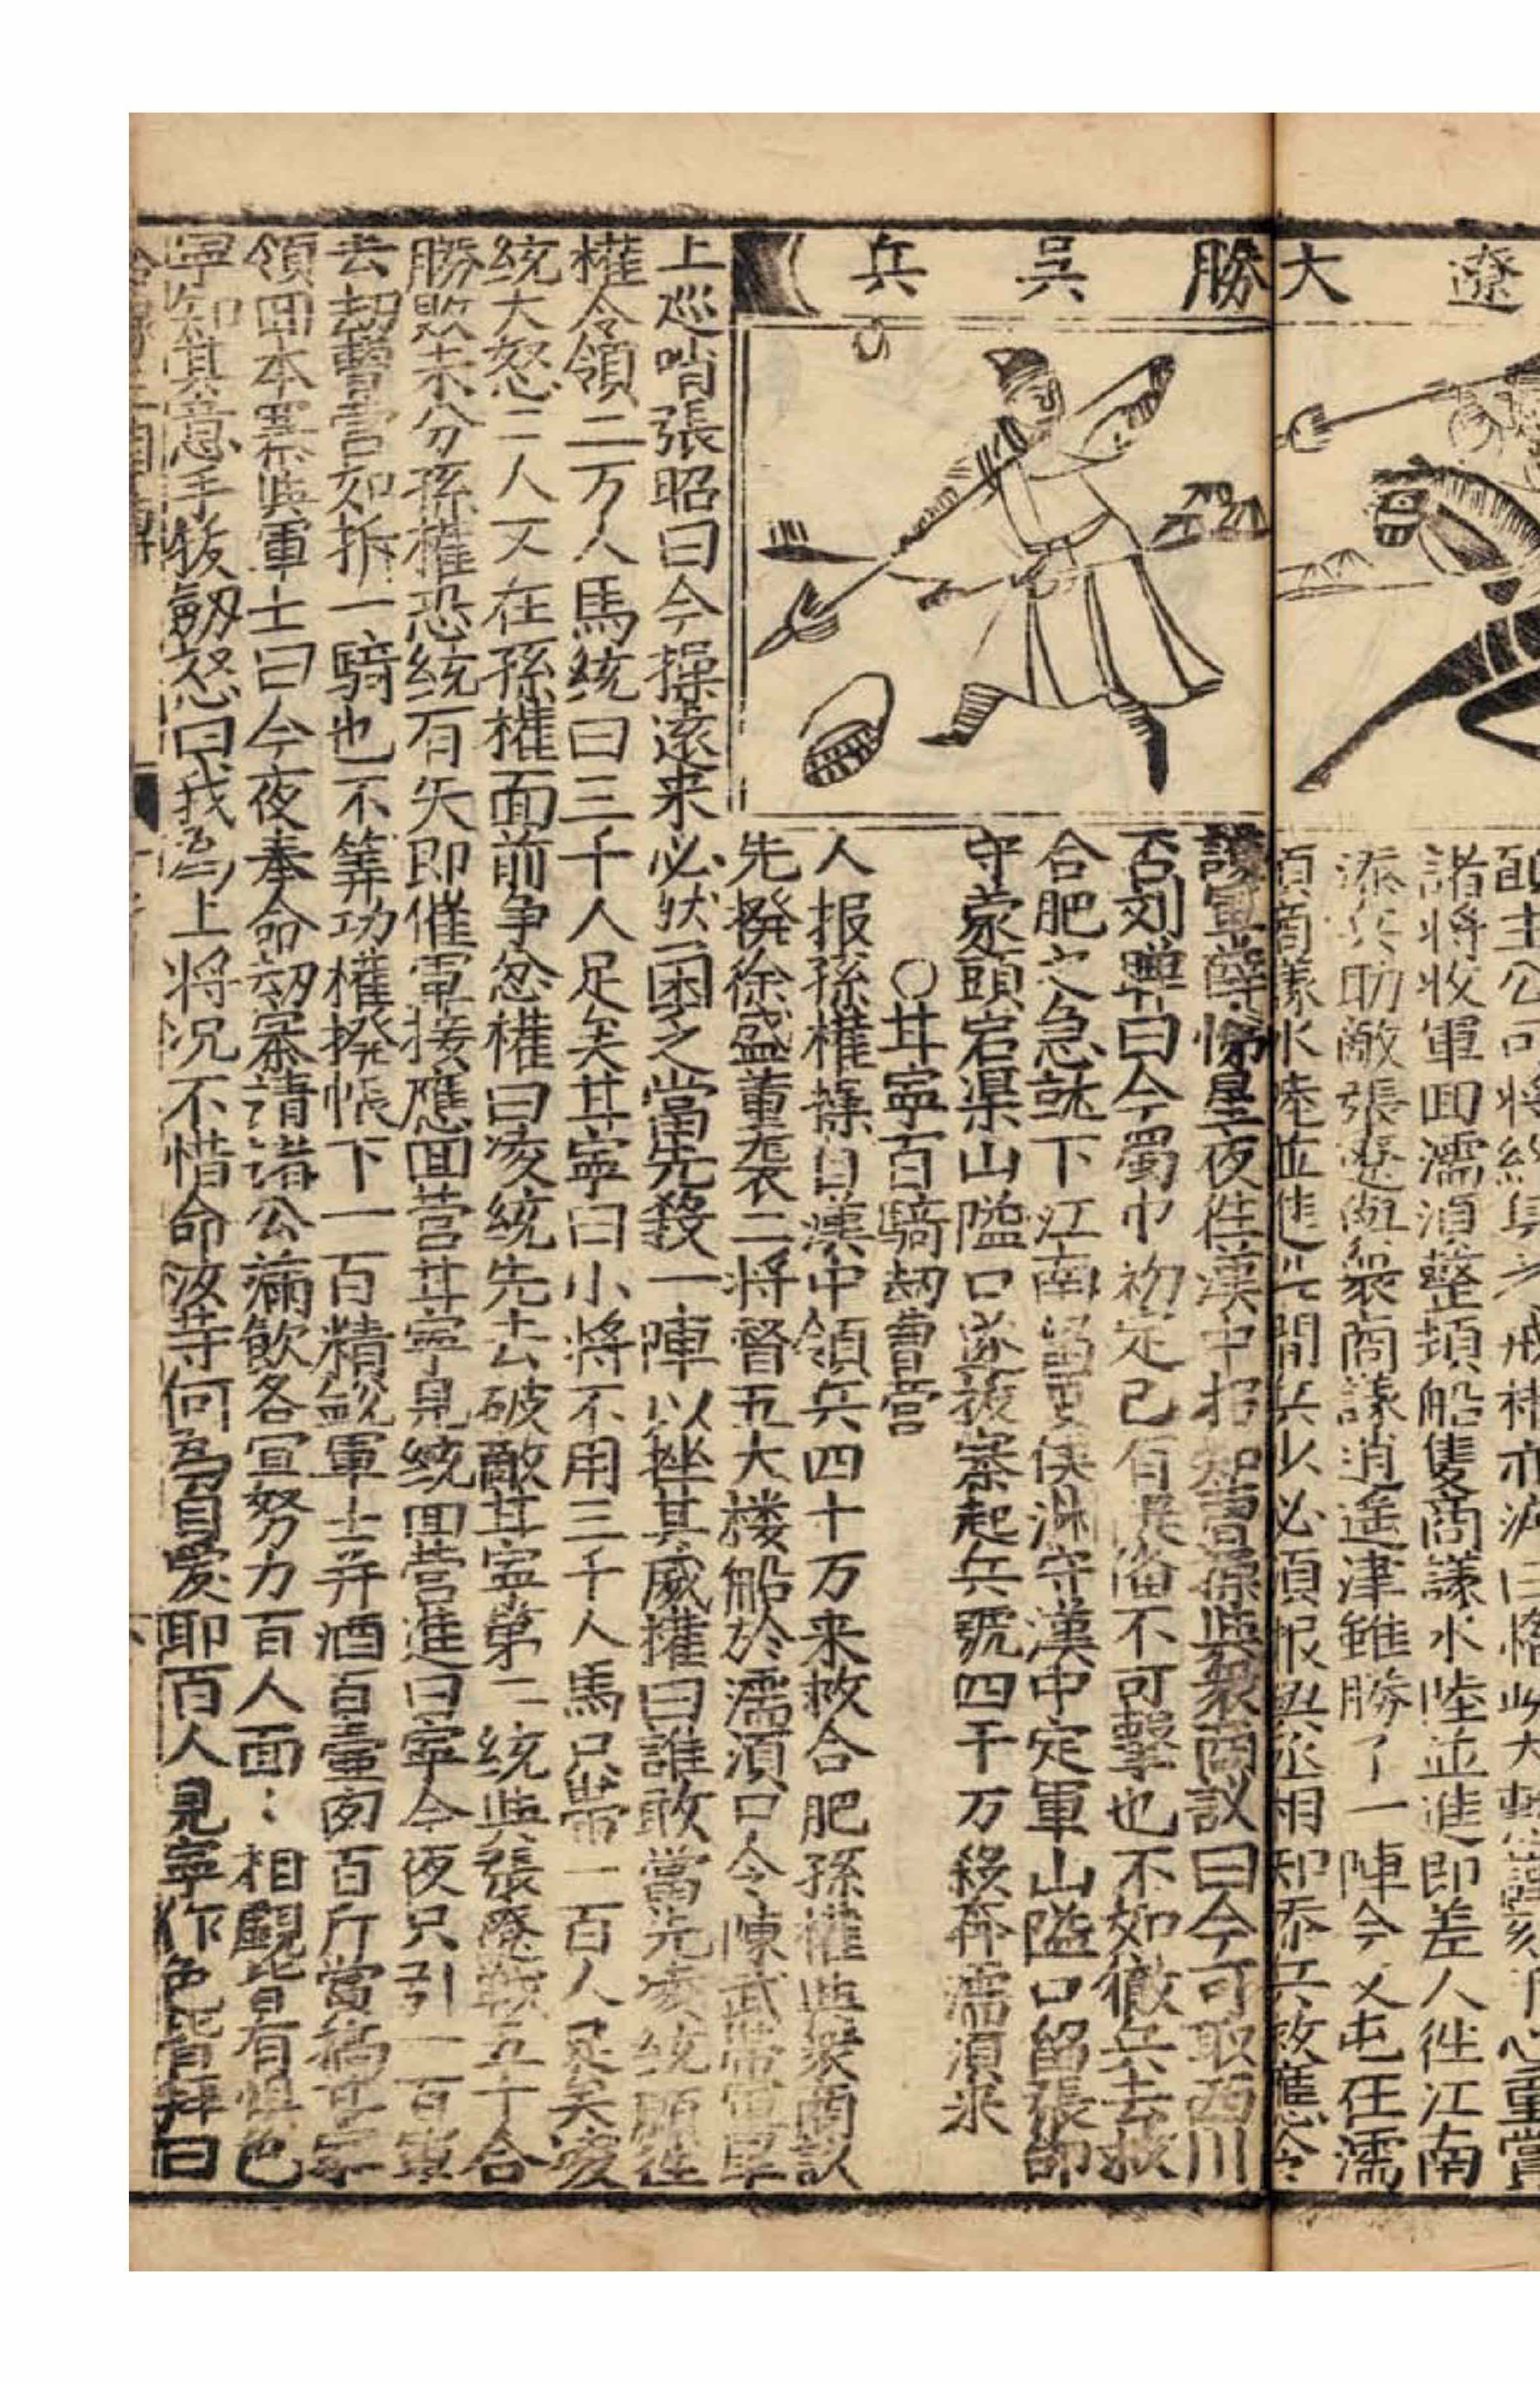 遼大勝吳兵
諸将收軍囬濡湏整頓船隻商議水陸並進即差人徃江南
添兵助敵張遼與衆商議逍遥津雖勝了一陣今又屯在濡
水陸並進此間兵少必湏报與丞相知添兵救應令
護軍薛悌星夜徃漢中报知曹操與衆商议曰今可取西川
否刘曄曰今蜀中初定已有准俻不可擊也不如徹兵去救
合肥之急就下江南留夏侯渊守漢中定軍山隘口留張郃
守蒙頭宕渠山隘口遂拔寨起兵號四十万移奔濡湏来
○甘寧百騎刼曹营
人报孫權操自漢中領兵四十万来救合肥孫權與衆商议
先撥徐盛董袭二将督五大楼船於濡湏口令陳武帶軍岸
上巡哨張昭曰今操遠来必然困之當先殺一陣以挫其威權曰誰敢當先凌統願徃
權令領二万人馬統曰三千人足矣甘寧曰小将不用三千人馬只帶一百人足矣凌
統大怒二人又在孫權面前争忿權曰凌統先去破敵甘寧第二統與張遼戰五十合
勝敗未分孫權恐統有失即催軍接應囬营甘寧見統囬营進曰寧今夜只引一百軍
去刼曹营如折一騎也不筭功權撥帳下一百精銳軍士并酒百壷肉百斤賞犒甘寧
領囬本寨與軍士曰今夜奉命刼寨請諸公滿飲各宜努力百人面：相覷皆有惧色
寧知其意手拔劒怒曰我為上将况不惜命汝等何為自愛耶百人見寧作色皆拜曰